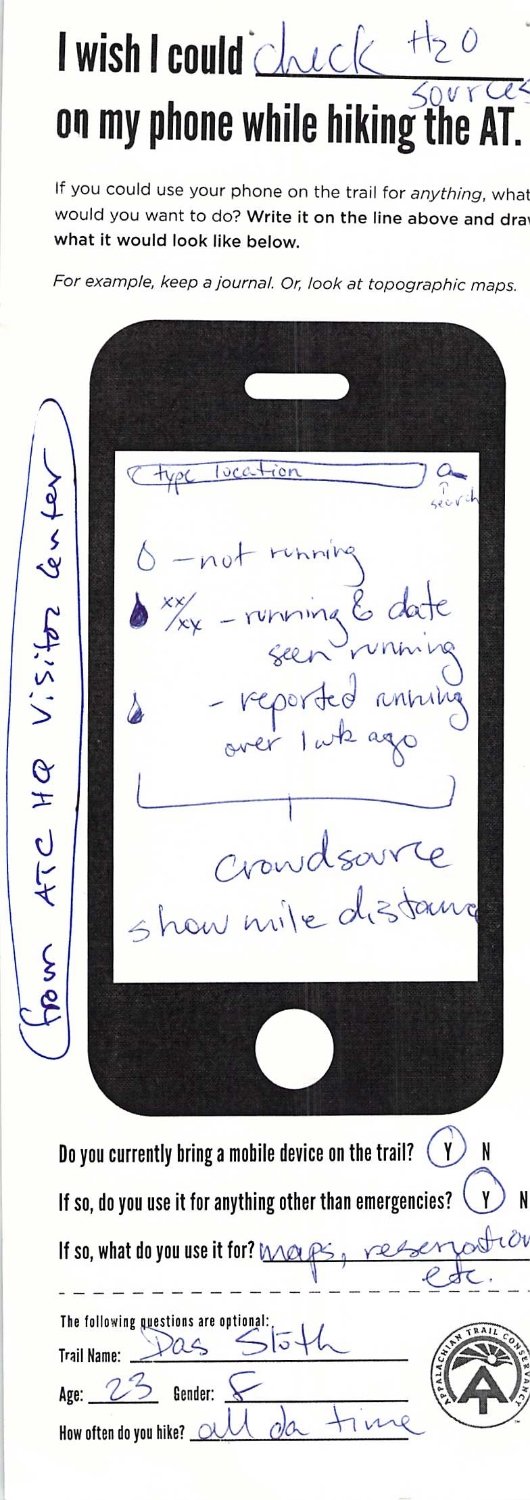 I wish I could check H2O
sources
on my phone while hiking the AT.
If you could use your phone on the trail for anything, what
would you want to do? Write it on the line above and dra
what it would look like below.
For example, keep a journal. Or, look at topographic maps.
type location
search
- not running
xx/xx - running & date
seen running
- reported running
over 1 wk ago
crowdsource
show mile distance
from ATC HQ Visitor Center
Do you currently bring a mobile device on the trail? Y N
If so, do you use it for anything other than emergencies? Y N
If so, what do you use it for? maps, reservation
etc.
The following questions are optional:
Trail Name: Das Sloth
Age: 23 Gender: F
How often do you hike? all da time
APPALACHIAN TRAIL CONSERVANCY